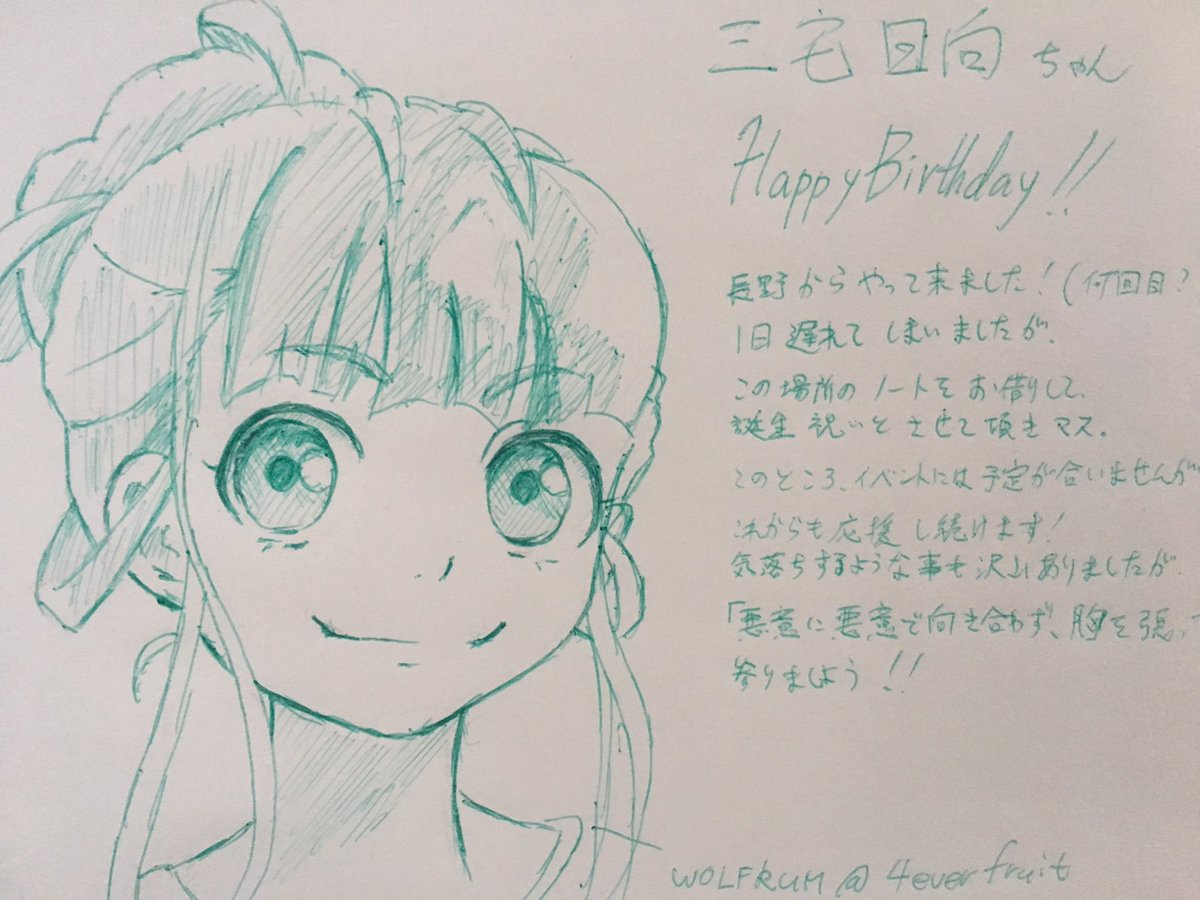 三宅日向ちゃん
Happy Birthday!!
長野からやって来ました!(何回目?
1日遅れてしまいましたが、
この場所のノートをお借りして、
誕生祝いとさせて頂きマス。
このところ、イベントには予定が合いませんが
これからも応援し続けます!
気落ちするような事も沢山ありましたが、
「悪意に悪意で向き合わず、胸を張って
参りましょう!!
WOLFRUM @ 4everfruit